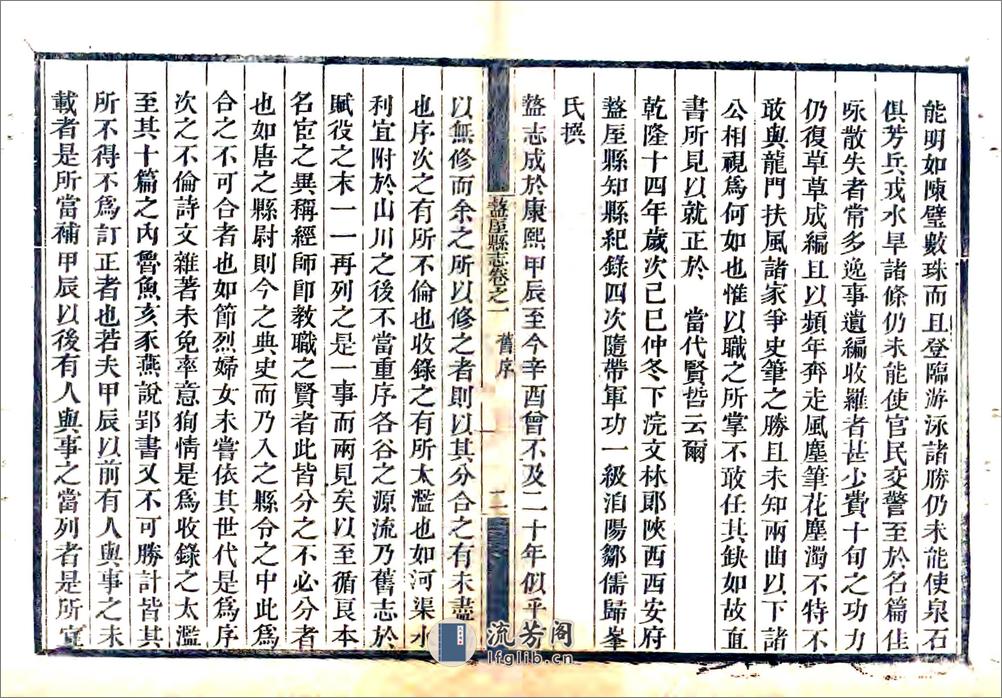 能明如陳璧數珠而且登臨游泳諸勝仍未能使泉石
俱芳兵戎水旱諸條仍未能使官民交警至於名篇佳
咏散失者常多逸事遺編收羅者甚少費十旬之功力
仍復草草成編且以頻年奔走風塵筆花塵濁不特不
敢與龍門扶風諸家爭史筆之勝且未知兩曲以下諸
公相視爲何如也惟以職之所掌不敢任其缺如故直
書所見以就正於 當代賢哲云爾
乾隆十四年歲次己巳仲冬下浣文林郎陝西西安府
盩厔縣知縣紀錄四次隨帶軍功一級洎陽鄒儒歸峯
氏撰
盩志成於康熙甲辰至今辛酉曾不及二十年似乎可
盩厔縣志卷之一 舊序 二
以無修而余之所以修之者則以其分合之有未盡
也序次之有所不倫也收錄之有所太濫也如河渠水
利宜附於山川之後不當重序各谷之源流乃舊志於
賦役之末一一再列之是一事而兩見矣以至循良本
名宦之異稱經師即教職之賢者此皆分之不必分者
也如唐之縣尉則今之典史而乃入之縣令之中此爲
合之不可合者也如節烈婦女未嘗依其世代是爲序
次之不倫詩文雜著未免率意狥情是爲收錄之太濫
至其十篇之內魯魚亥豕燕說郢書又不可勝計皆其
所不得不爲訂正者也若夫甲辰以前有人與事之未
載者是所當補甲辰以後有人與事之當列者是所宜
流芳閣
lfglib.cn